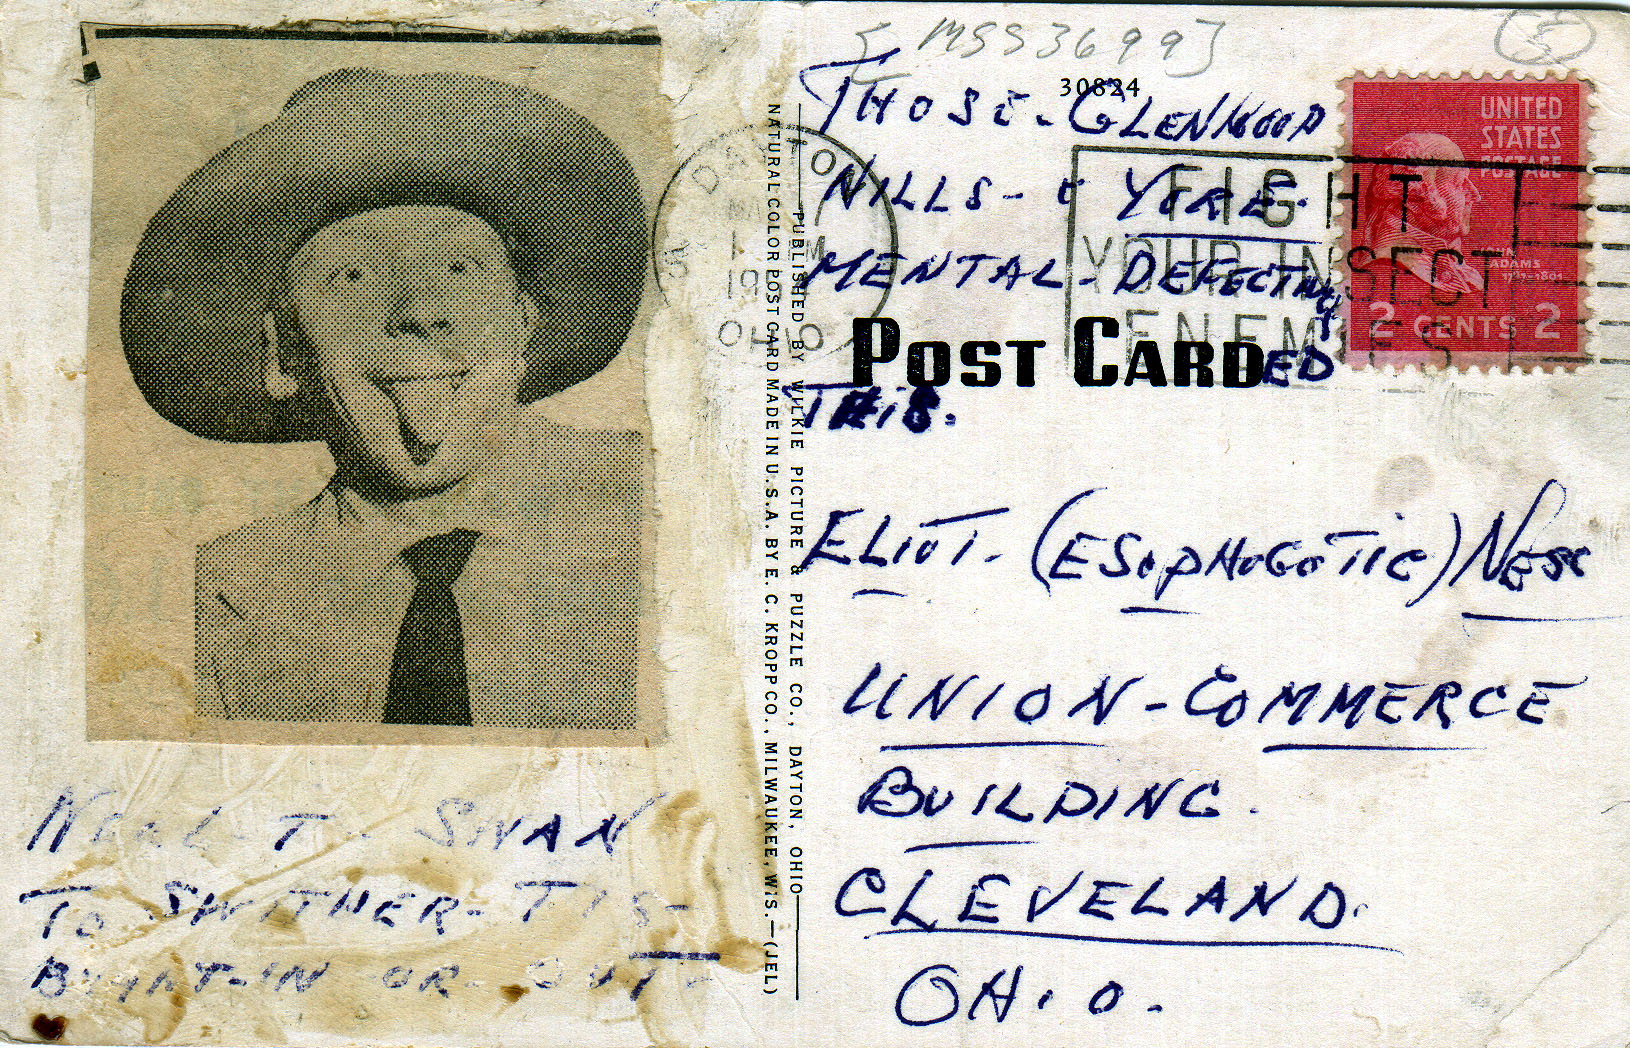 [MSS3699]
5
30824
THOSE-GLENWOOD
NILLS-
MENTAL-DEFECTIVE
POST CARD
THIS.
UNITED
STATES
POSTAGE
JOHN
ADAMS
2 CENTS 2
FIGHT
YOUR INSECT
ENEMIES
DAYTON
OHIO
PUBLISHED BY WILKIE PICTURE & PUZZLE CO., DAYTON, OHIO
NATURAL COLOR POST CARD MADE IN U.S.A. BY E. C. KROPP CO., MILWAUKEE, WIS.—(JEL)
ELIOT. (ESOPHOGOTIC) NESS
UNION-COMMERCE
BUILDING.
CLEVELAND.
OHIO.
T- SWAN
TO SWITHER-TIS-
IN OR-OUT-